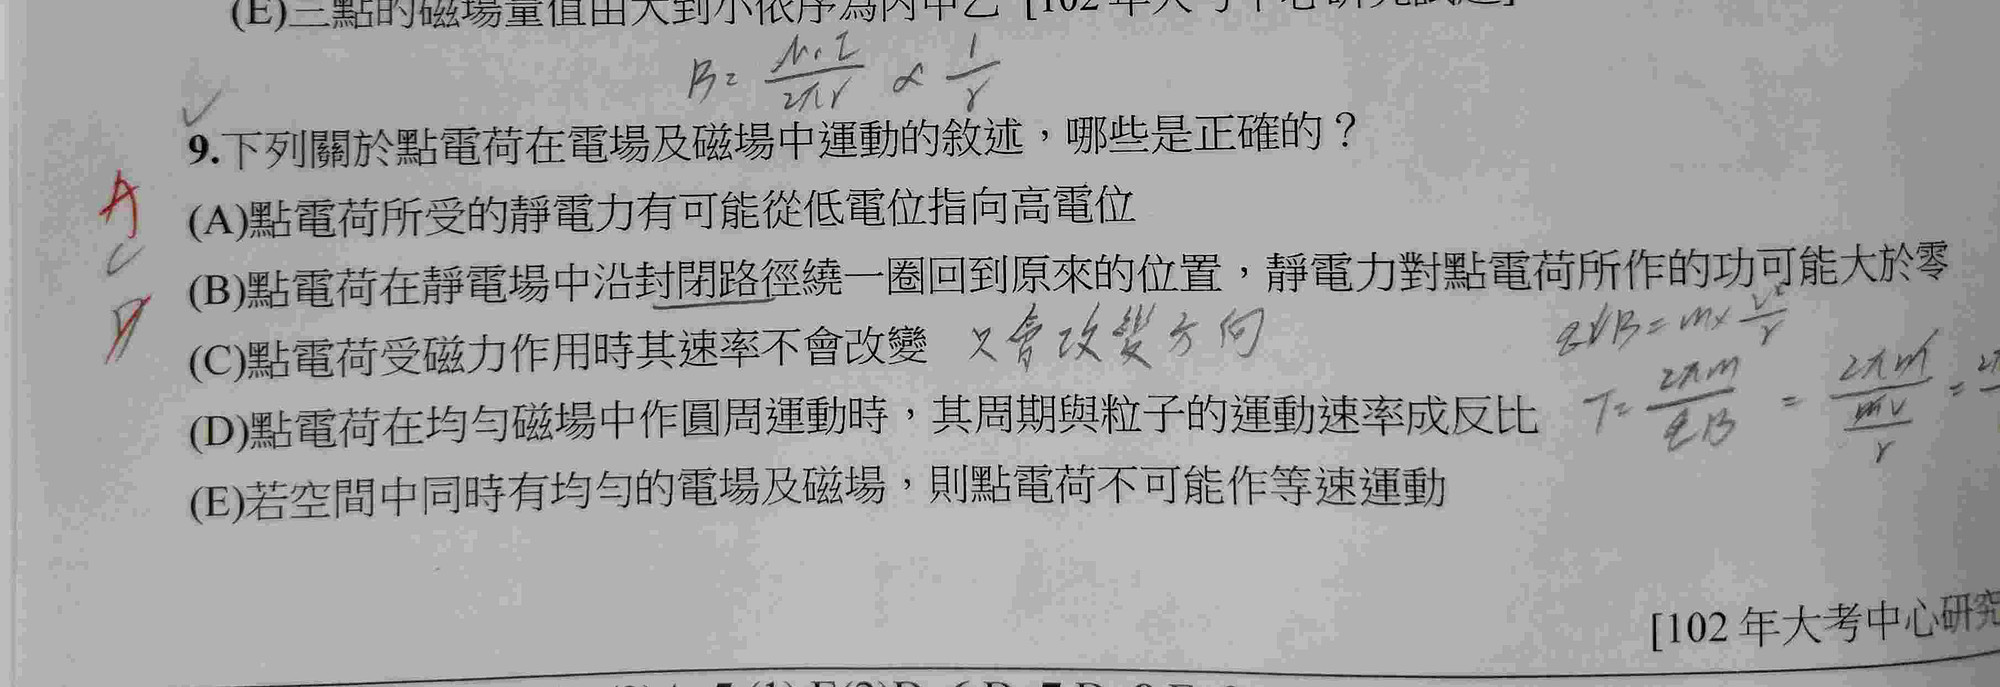 (E)三點的磁場量值由大到小依序為丙甲乙 [102 年大考中心研究試題]
B= μ₀I/2πr ∝ 1/r
9.下列關於點電荷在電場及磁場中運動的敘述，哪些是正確的？
A
(A)點電荷所受的靜電力有可能從低電位指向高電位
C
(B)點電荷在靜電場中沿封閉路徑繞一圈回到原來的位置，靜電力對點電荷所作的功可能大於零
D
(C)點電荷受磁力作用時其速率不會改變 只會改變方向
qvB = m× v²/r
(D)點電荷在均勻磁場中作圓周運動時，其周期與粒子的運動速率成反比
T= 2πm/qB = 2πm/(mv/r) =
(E)若空間中同時有均勻的電場及磁場，則點電荷不可能作等速運動
[102 年大考中心研究